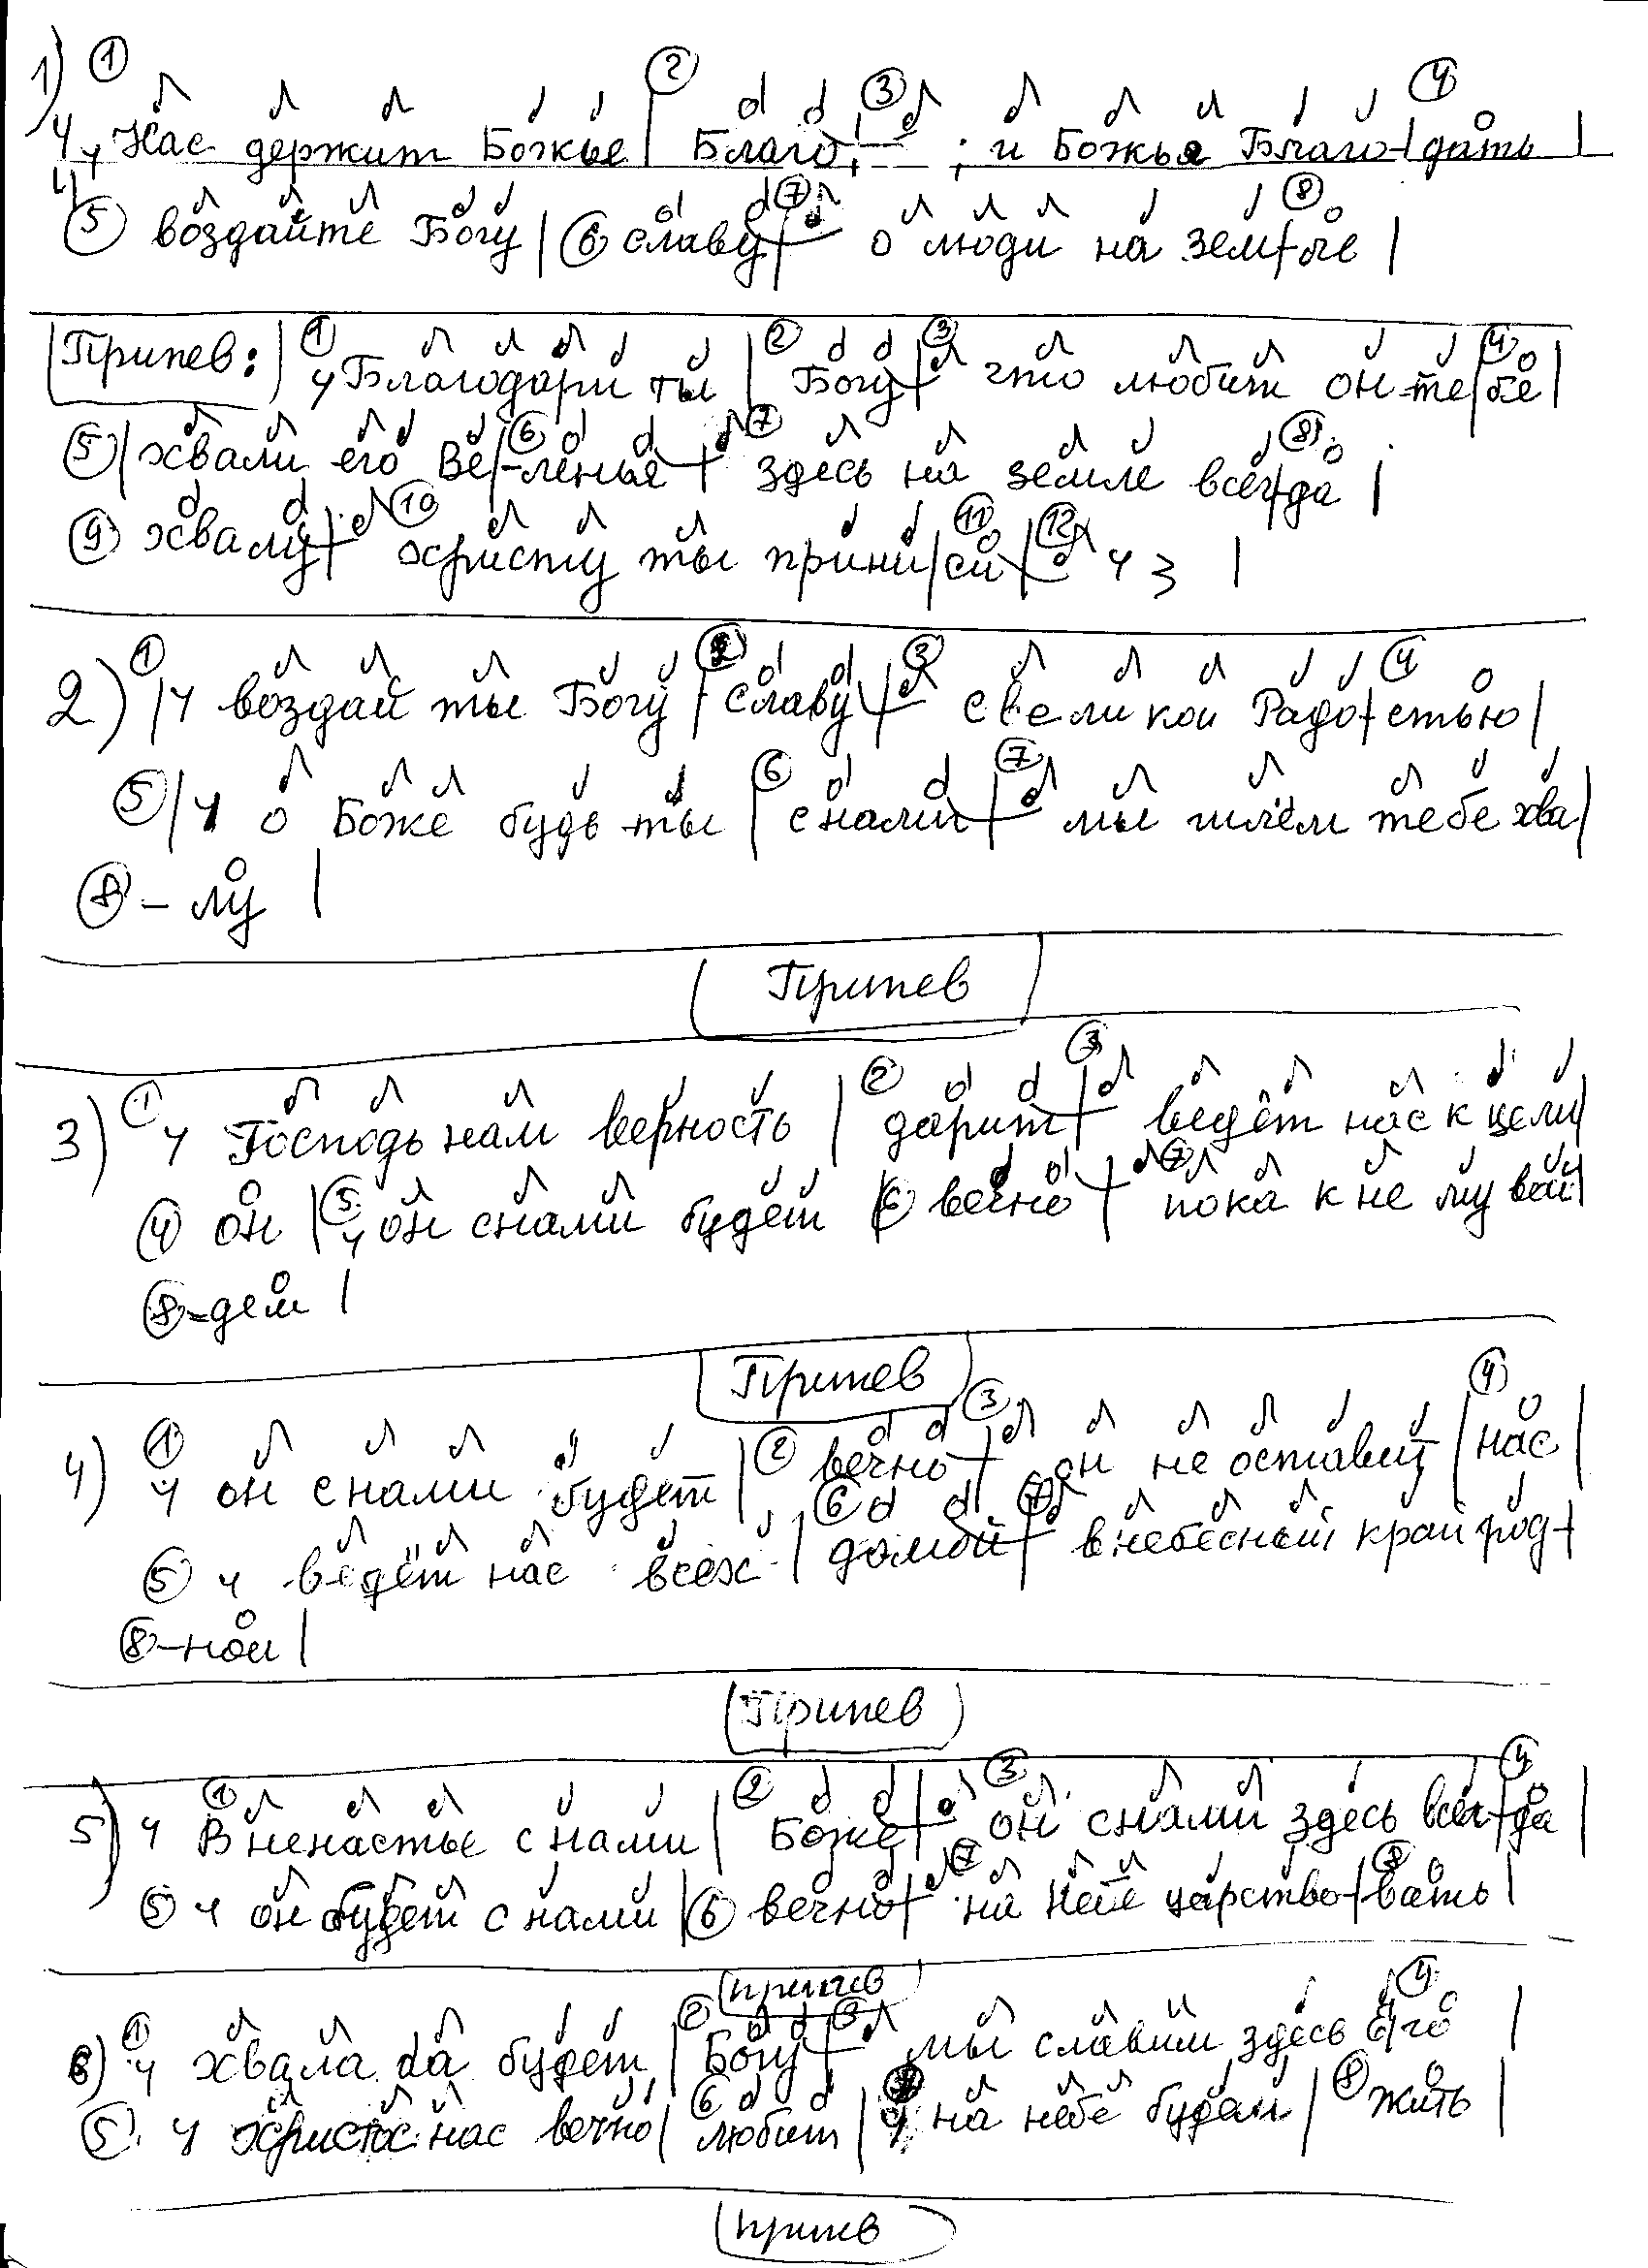 1) ① ② ③ ④
Нас держит Божье | Благо, – ; и Божья Благо-|дать |
⑤ воздайте Богу | ⑥ славу | ⑦ о люди на зем|ле ⑧ |
Припев: | ① Благодари ты | ② Богу | ③ что любит он те|бе ④ |
⑤ | хвали его Ве|-ленье ⑥ | ⑦ здесь на земле всег|да ⑧ |
⑨ хвалу | ⑩ христу ты прини|си ⑪ | ⑫ |
2) ① | воздай ты Богу | ② славу | ③ с великой Радо|стью ④ |
⑤ | о Боже будь ты | ⑥ с нами | ⑦ мы шлём тебе хва|
⑧ – лу |
Припев
3) ① Господь нам верность | ② дарит | ③ ведёт нас к цели|
④ он | ⑤ он с нами будет | ⑥ вечно | ⑦ пока к не му вой|
⑧ -дем |
Припев
4) ① он с нами будет | ② вечно | ③ он не оставит | ④ нас |
⑤ ведёт нас всех | ⑥ домой | ⑦ в небесный край род-|
⑧ -ной |
Припев
5) ① В ненастье с нами | ② Боже | ③ он с нами здесь всег|да ④ |
⑤ он будет с нами | ⑥ вечно | ⑦ на небе царство-|вать ⑧ |
припев
6) ① хвала да будет | ② Богу | ③ мы славим здесь Е|го ④ |
⑤ христос нас вечно | ⑥ любит | ⑦ на небе будем | ⑧ жить |
припев